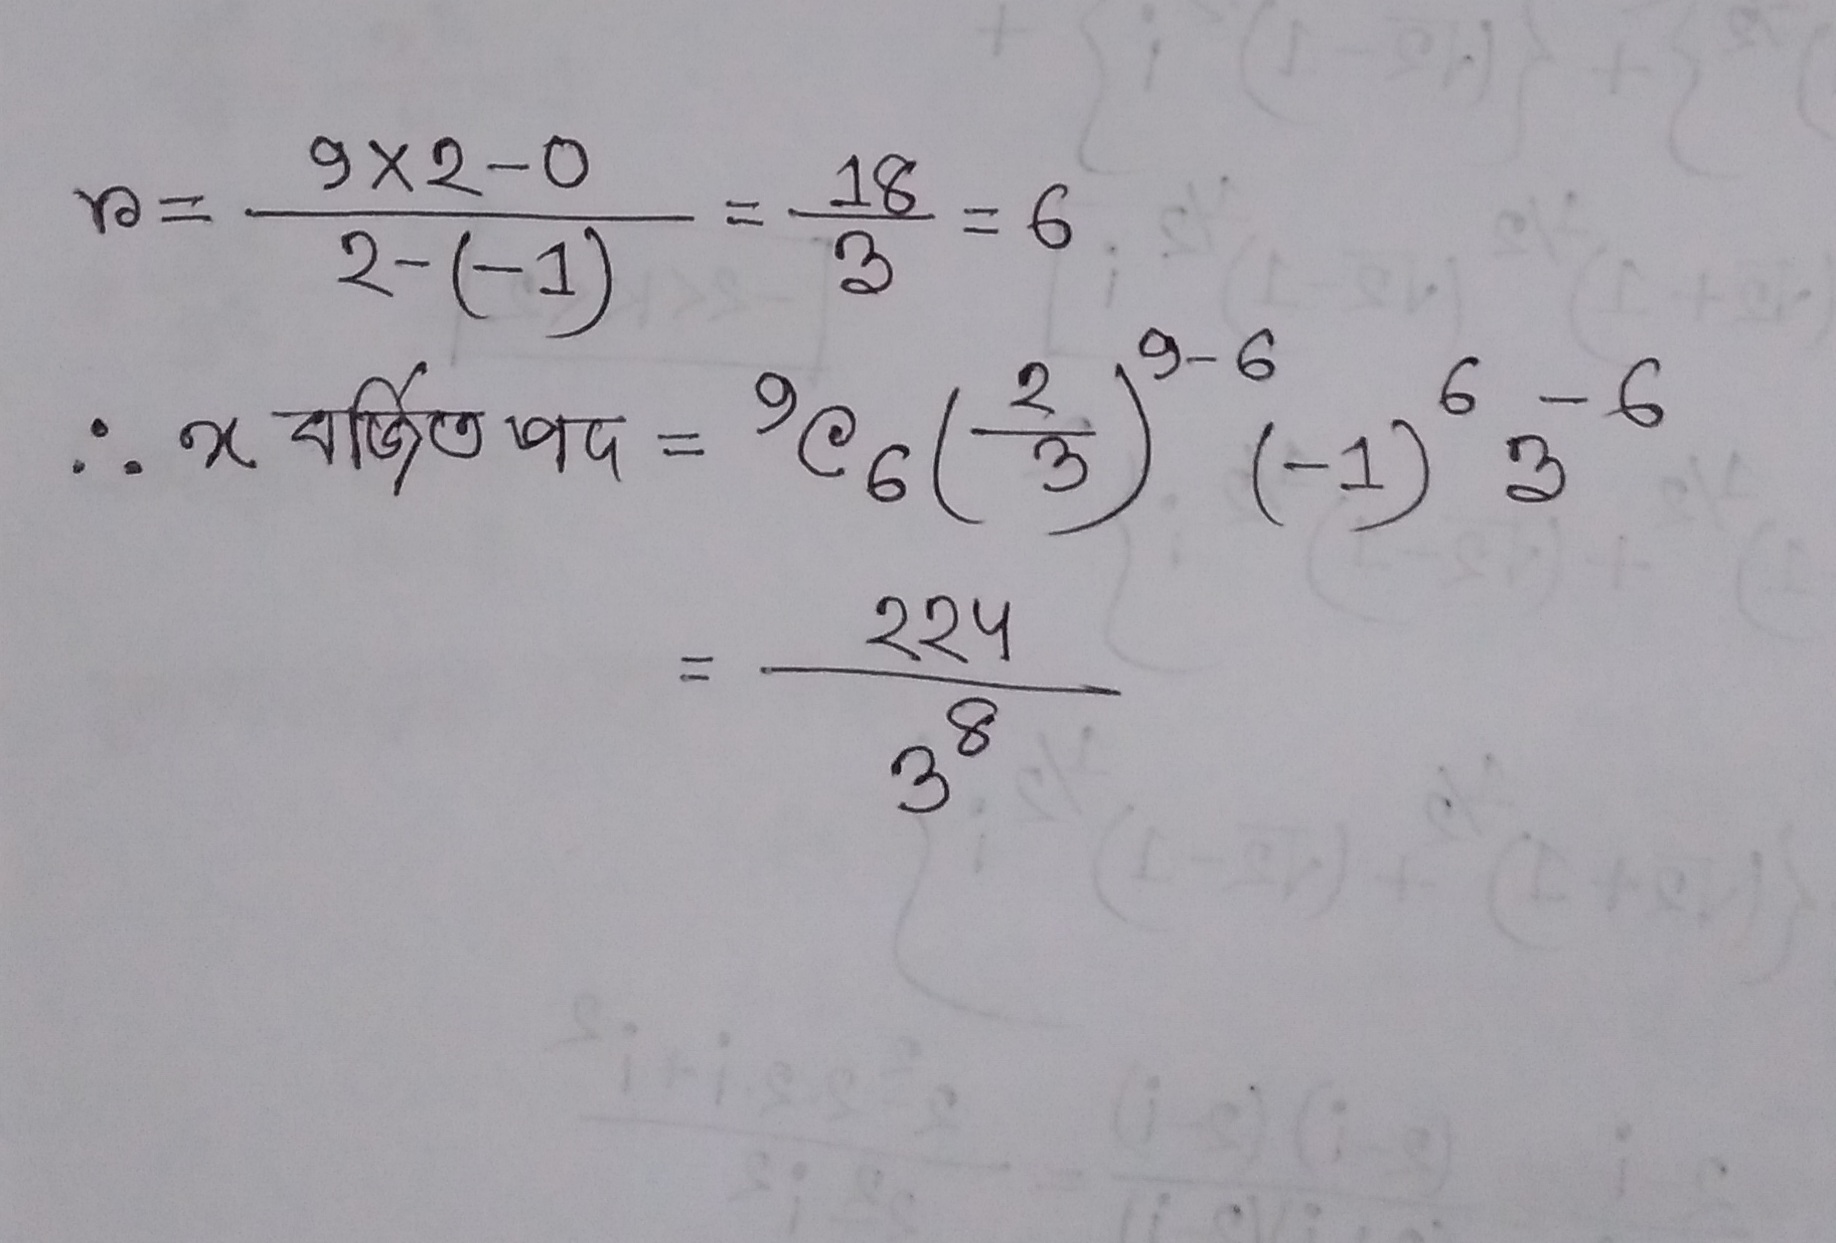 r = (9×2-0)/(2-(-1)) = 18/3 = 6
∴ x বর্জিত পদ = ⁹C₆ (2/3)⁹⁻⁶ (-1)⁶ 3⁻⁶
= 224/3⁸